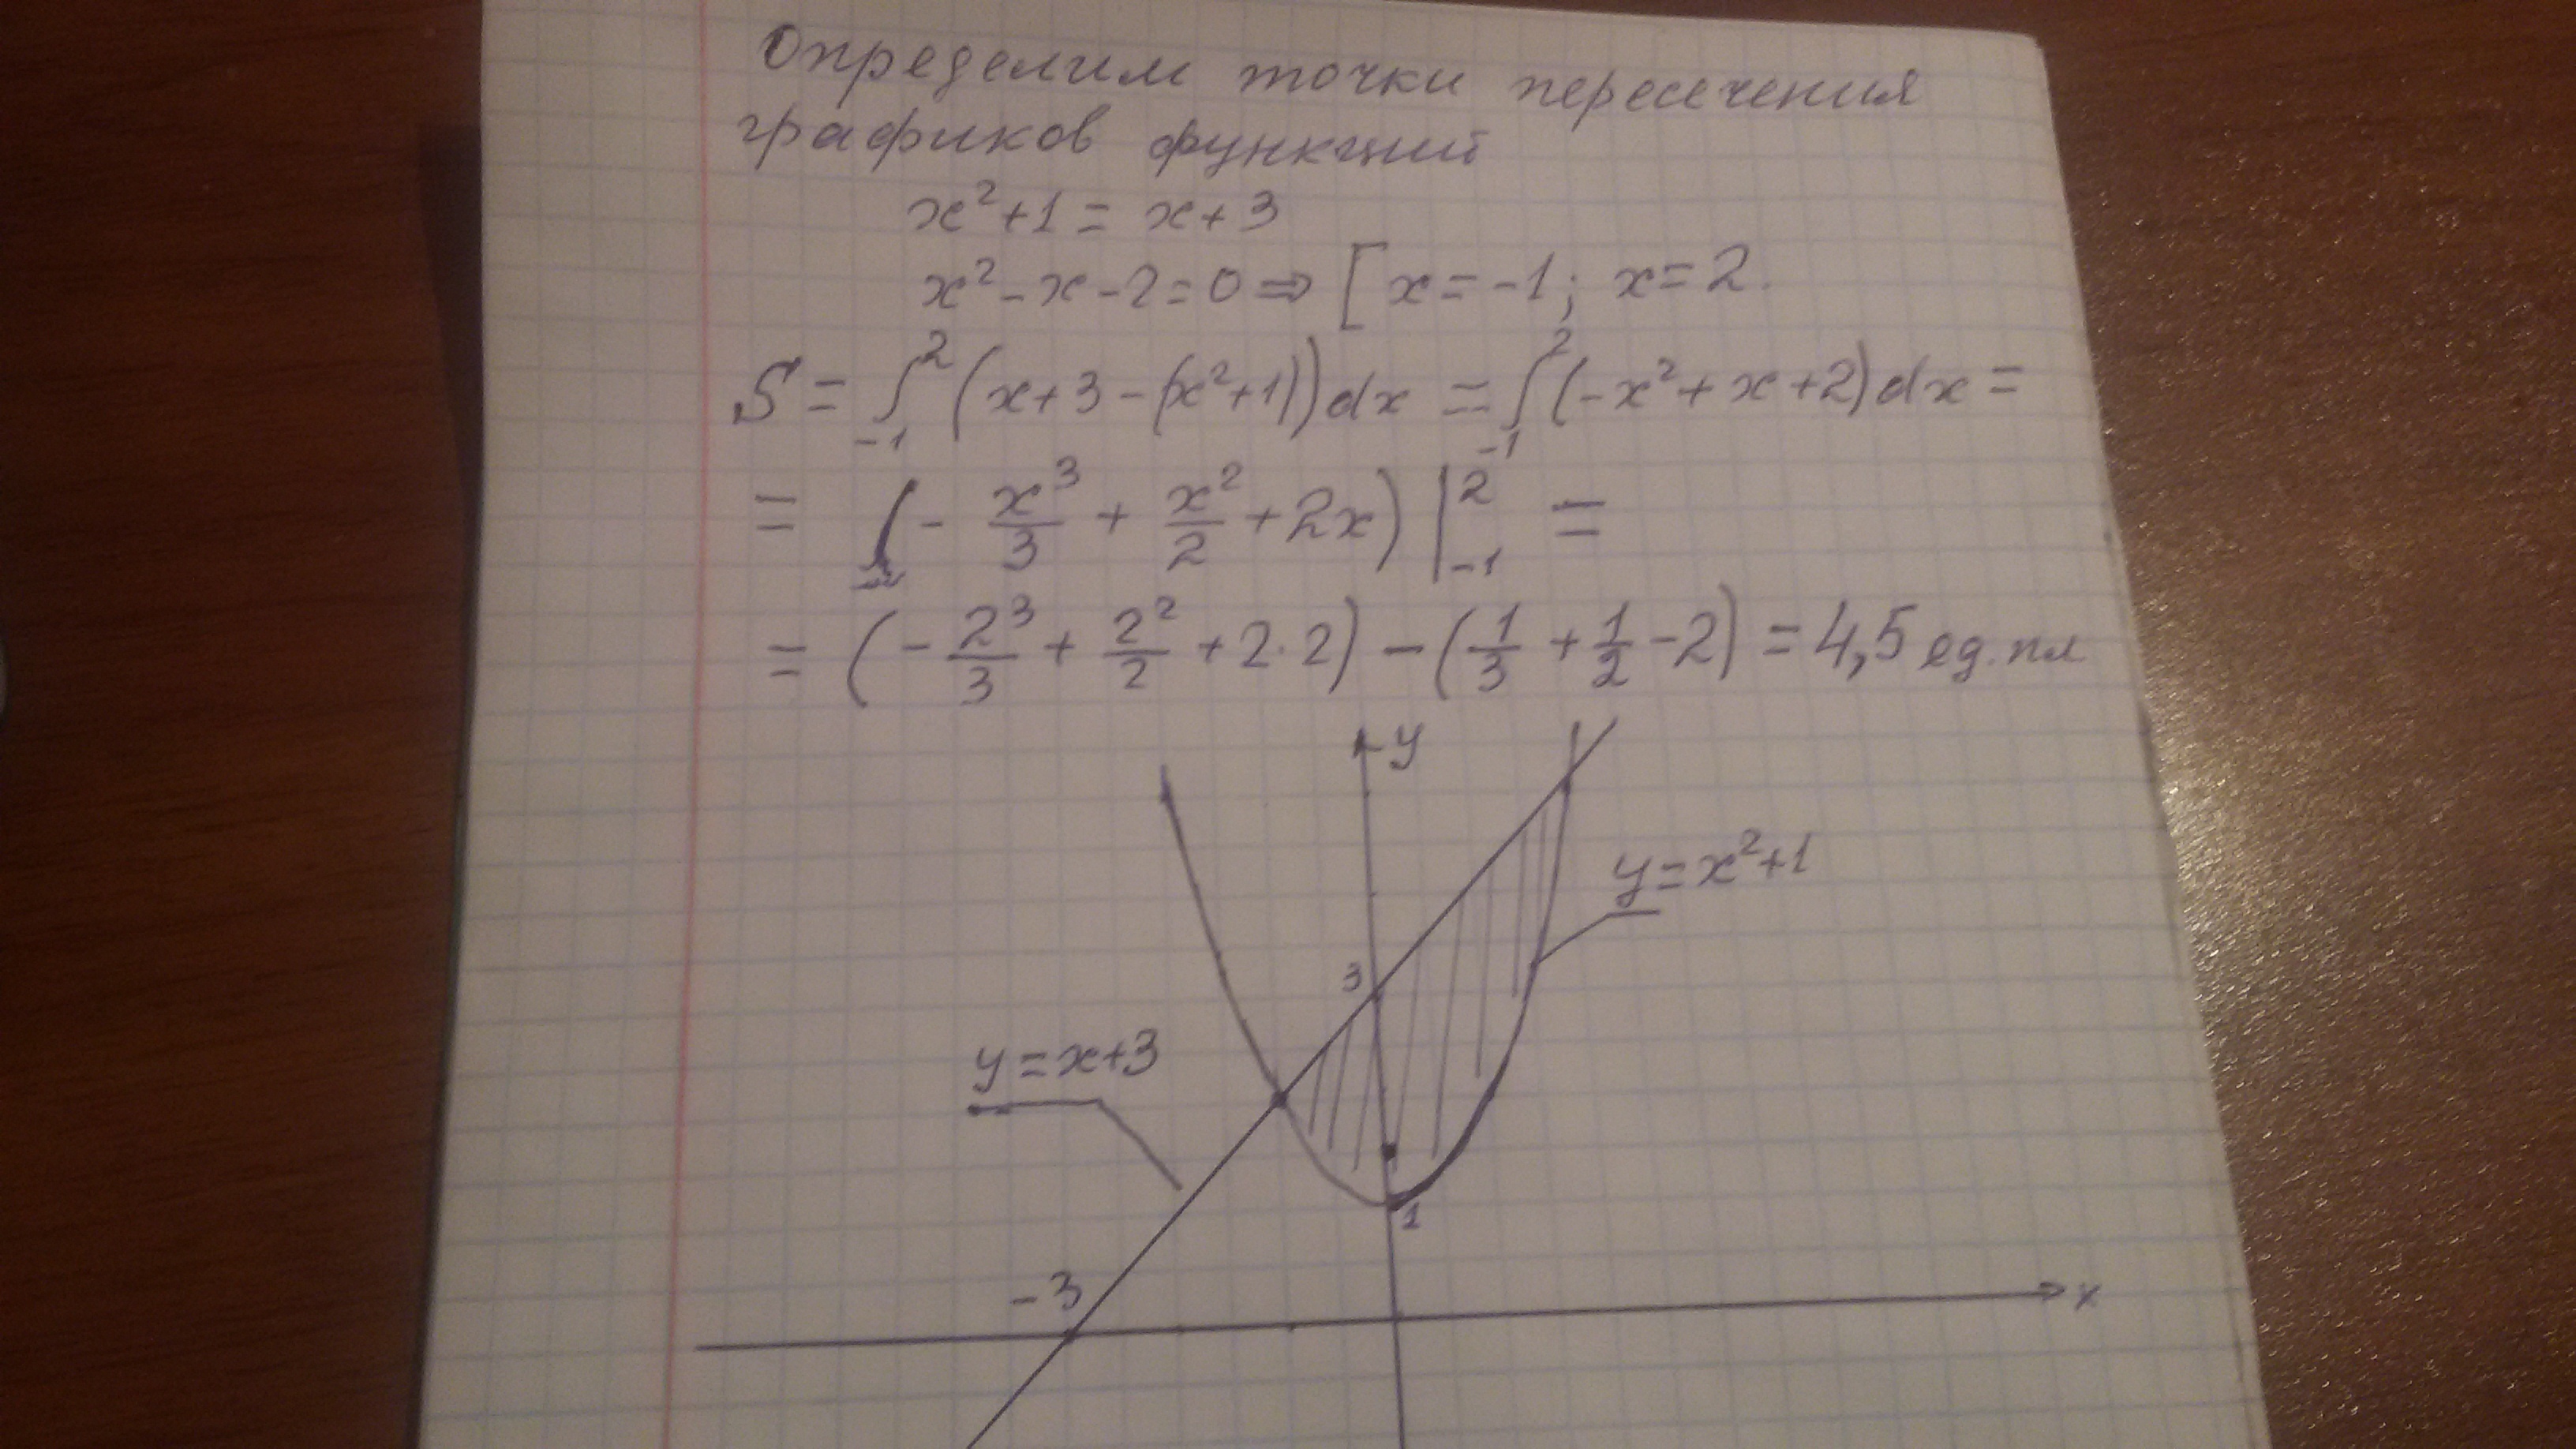 Определим точки пересечения
графиков функций
x²+1 = x+3
x²-x-2=0 ⇒ [x=-1; x=2.
S = ∫₋₁² (x+3-(x²+1))dx = ∫₋₁² (-x²+x+2)dx =
= (- x³/3 + x²/2 + 2x) |₋₁² =
= (- 2³/3 + 2²/2 + 2·2) - (1/3 + 1/2 - 2) = 4,5 ед. пл
y
y=x²+1
3
y=x+3
1
-3
x